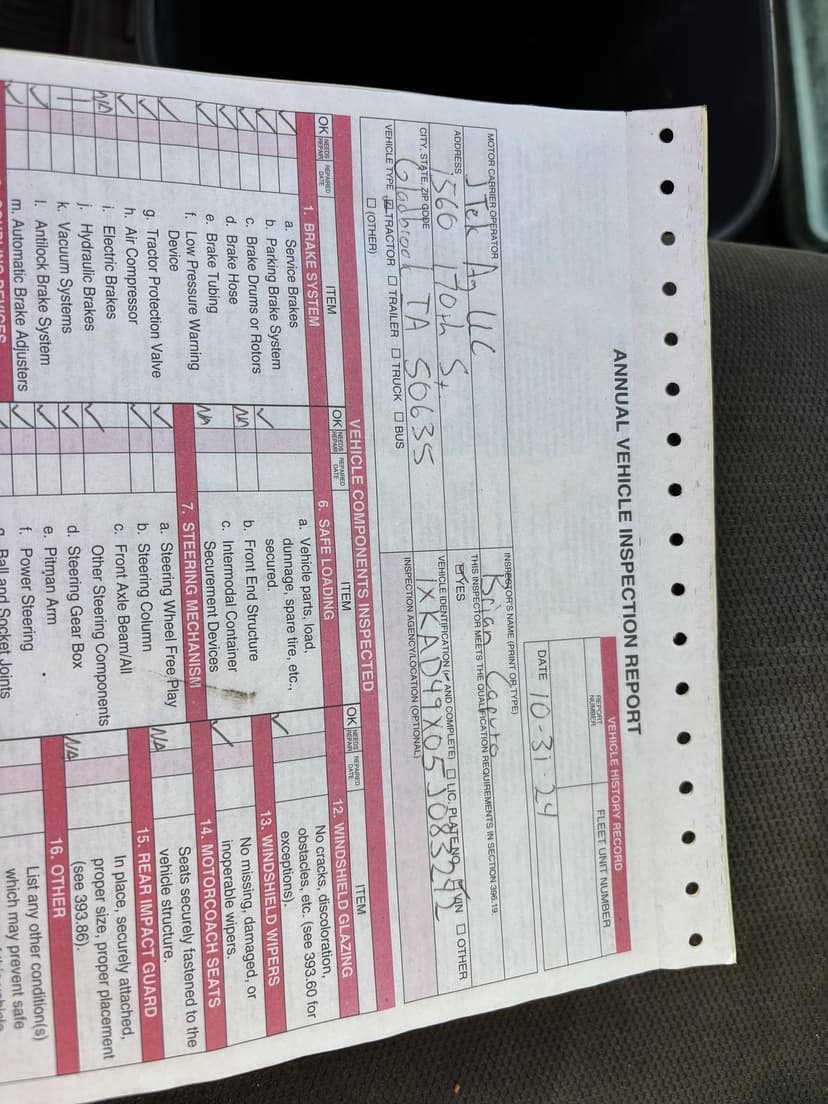 ANNUAL VEHICLE INSPECTION REPORT
VEHICLE HISTORY RECORD
REPORT NUMBER
FLEET UNIT NUMBER
DATE 10-31-24
MOTOR CARRIER OPERATOR
JTek Ag LLC
ADDRESS
1560 170th St
CITY, STATE, ZIP CODE
Gladbrook IA 50635
VEHICLE TYPE ☑ TRACTOR ☐ TRAILER ☐ TRUCK ☐ BUS
☐ (OTHER)
INSPECTOR'S NAME (PRINT OR TYPE)
Brian Caputo
THIS INSPECTOR MEETS THE QUALIFICATION REQUIREMENTS IN SECTION 396.19.
☑ YES
VEHICLE IDENTIFICATION (✓ AND COMPLETE) ☐ LIC. PLATE NO. ☑ VIN ☐ OTHER
1XKAD49X05J083242
INSPECTION AGENCY/LOCATION (OPTIONAL)
VEHICLE COMPONENTS INSPECTED
OK NEEDS REPAIR REPAIRED DATE ITEM
1. BRAKE SYSTEM
✓ a. Service Brakes
✓ b. Parking Brake System
✓ c. Brake Drums or Rotors
✓ d. Brake Hose
✓ e. Brake Tubing
✓ f. Low Pressure Warning
Device
✓ g. Tractor Protection Valve
✓ h. Air Compressor
NA i. Electric Brakes
j. Hydraulic Brakes
k. Vacuum Systems
✓ l. Antilock Brake System
✓ m. Automatic Brake Adjusters
COUPLING DEVICES
OK NEEDS REPAIR REPAIRED DATE ITEM
6. SAFE LOADING
✓ a. Vehicle parts, load,
dunnage, spare tire, etc.,
secured.
NA b. Front End Structure
NA c. Intermodal Container
Securement Devices
7. STEERING MECHANISM
✓ a. Steering Wheel Free Play
✓ b. Steering Column
✓ c. Front Axle Beam/All
Other Steering Components
✓ d. Steering Gear Box
✓ e. Pitman Arm
✓ f. Power Steering
g. Ball and Socket Joints
OK NEEDS REPAIR REPAIRED DATE ITEM
12. WINDSHIELD GLAZING
✓ No cracks, discoloration,
obstacles, etc. (see 393.60 for
exceptions).
13. WINDSHIELD WIPERS
✓ No missing, damaged, or
inoperable wipers.
14. MOTORCOACH SEATS
NA Seats securely fastened to the
vehicle structure.
15. REAR IMPACT GUARD
NA In place, securely attached,
proper size, proper placement
(see 393.86).
16. OTHER
List any other condition(s)
which may prevent safe